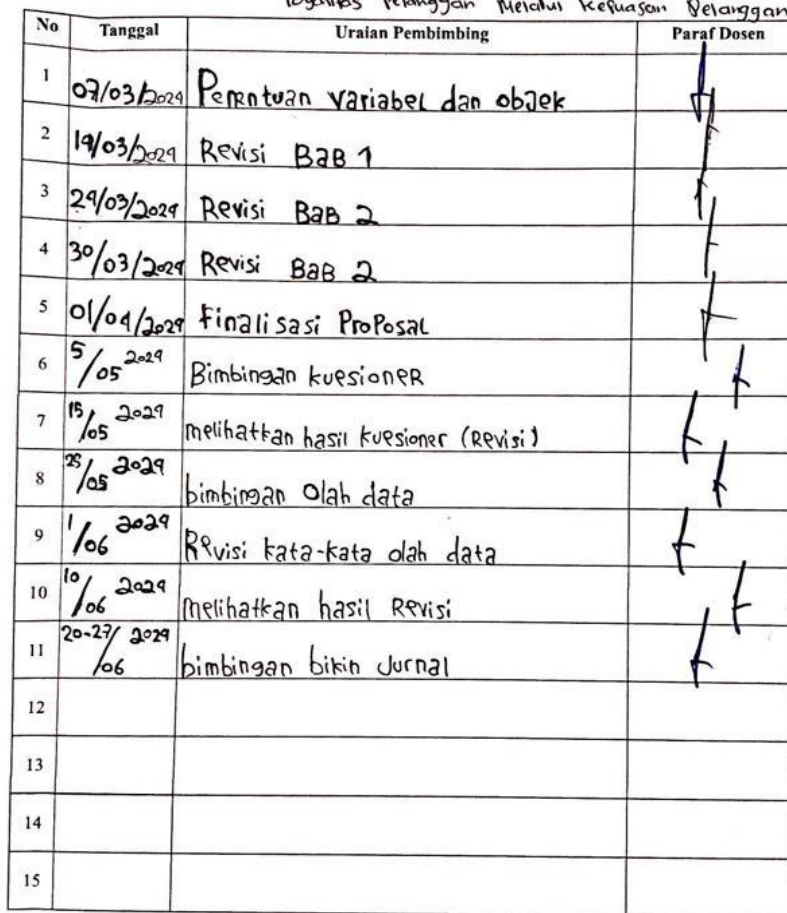 Loyalitas Pelanggan Melalui Kepuasan Pelanggan
No Tanggal Uraian Pembimbing Paraf Dosen
1 07/03/2024 Penentuan variabel dan objek
2 14/03/2024 Revisi BaB 1
3 24/03/2024 Revisi BaB 2
4 30/03/2024 Revisi BaB 2
5 01/04/2024 Finalisasi Proposal
6 5/05 2024 Bimbingan kuesioner
7 15/05 2024 melihatkan hasil kuesioner (Revisi)
8 25/05 2024 bimbingan Olah data
9 1/06 2024 Revisi kata-kata olah data
10 10/06 2024 melihatkan hasil Revisi
11 20-27/06 2024 bimbingan bikin Jurnal
12
13
14
15